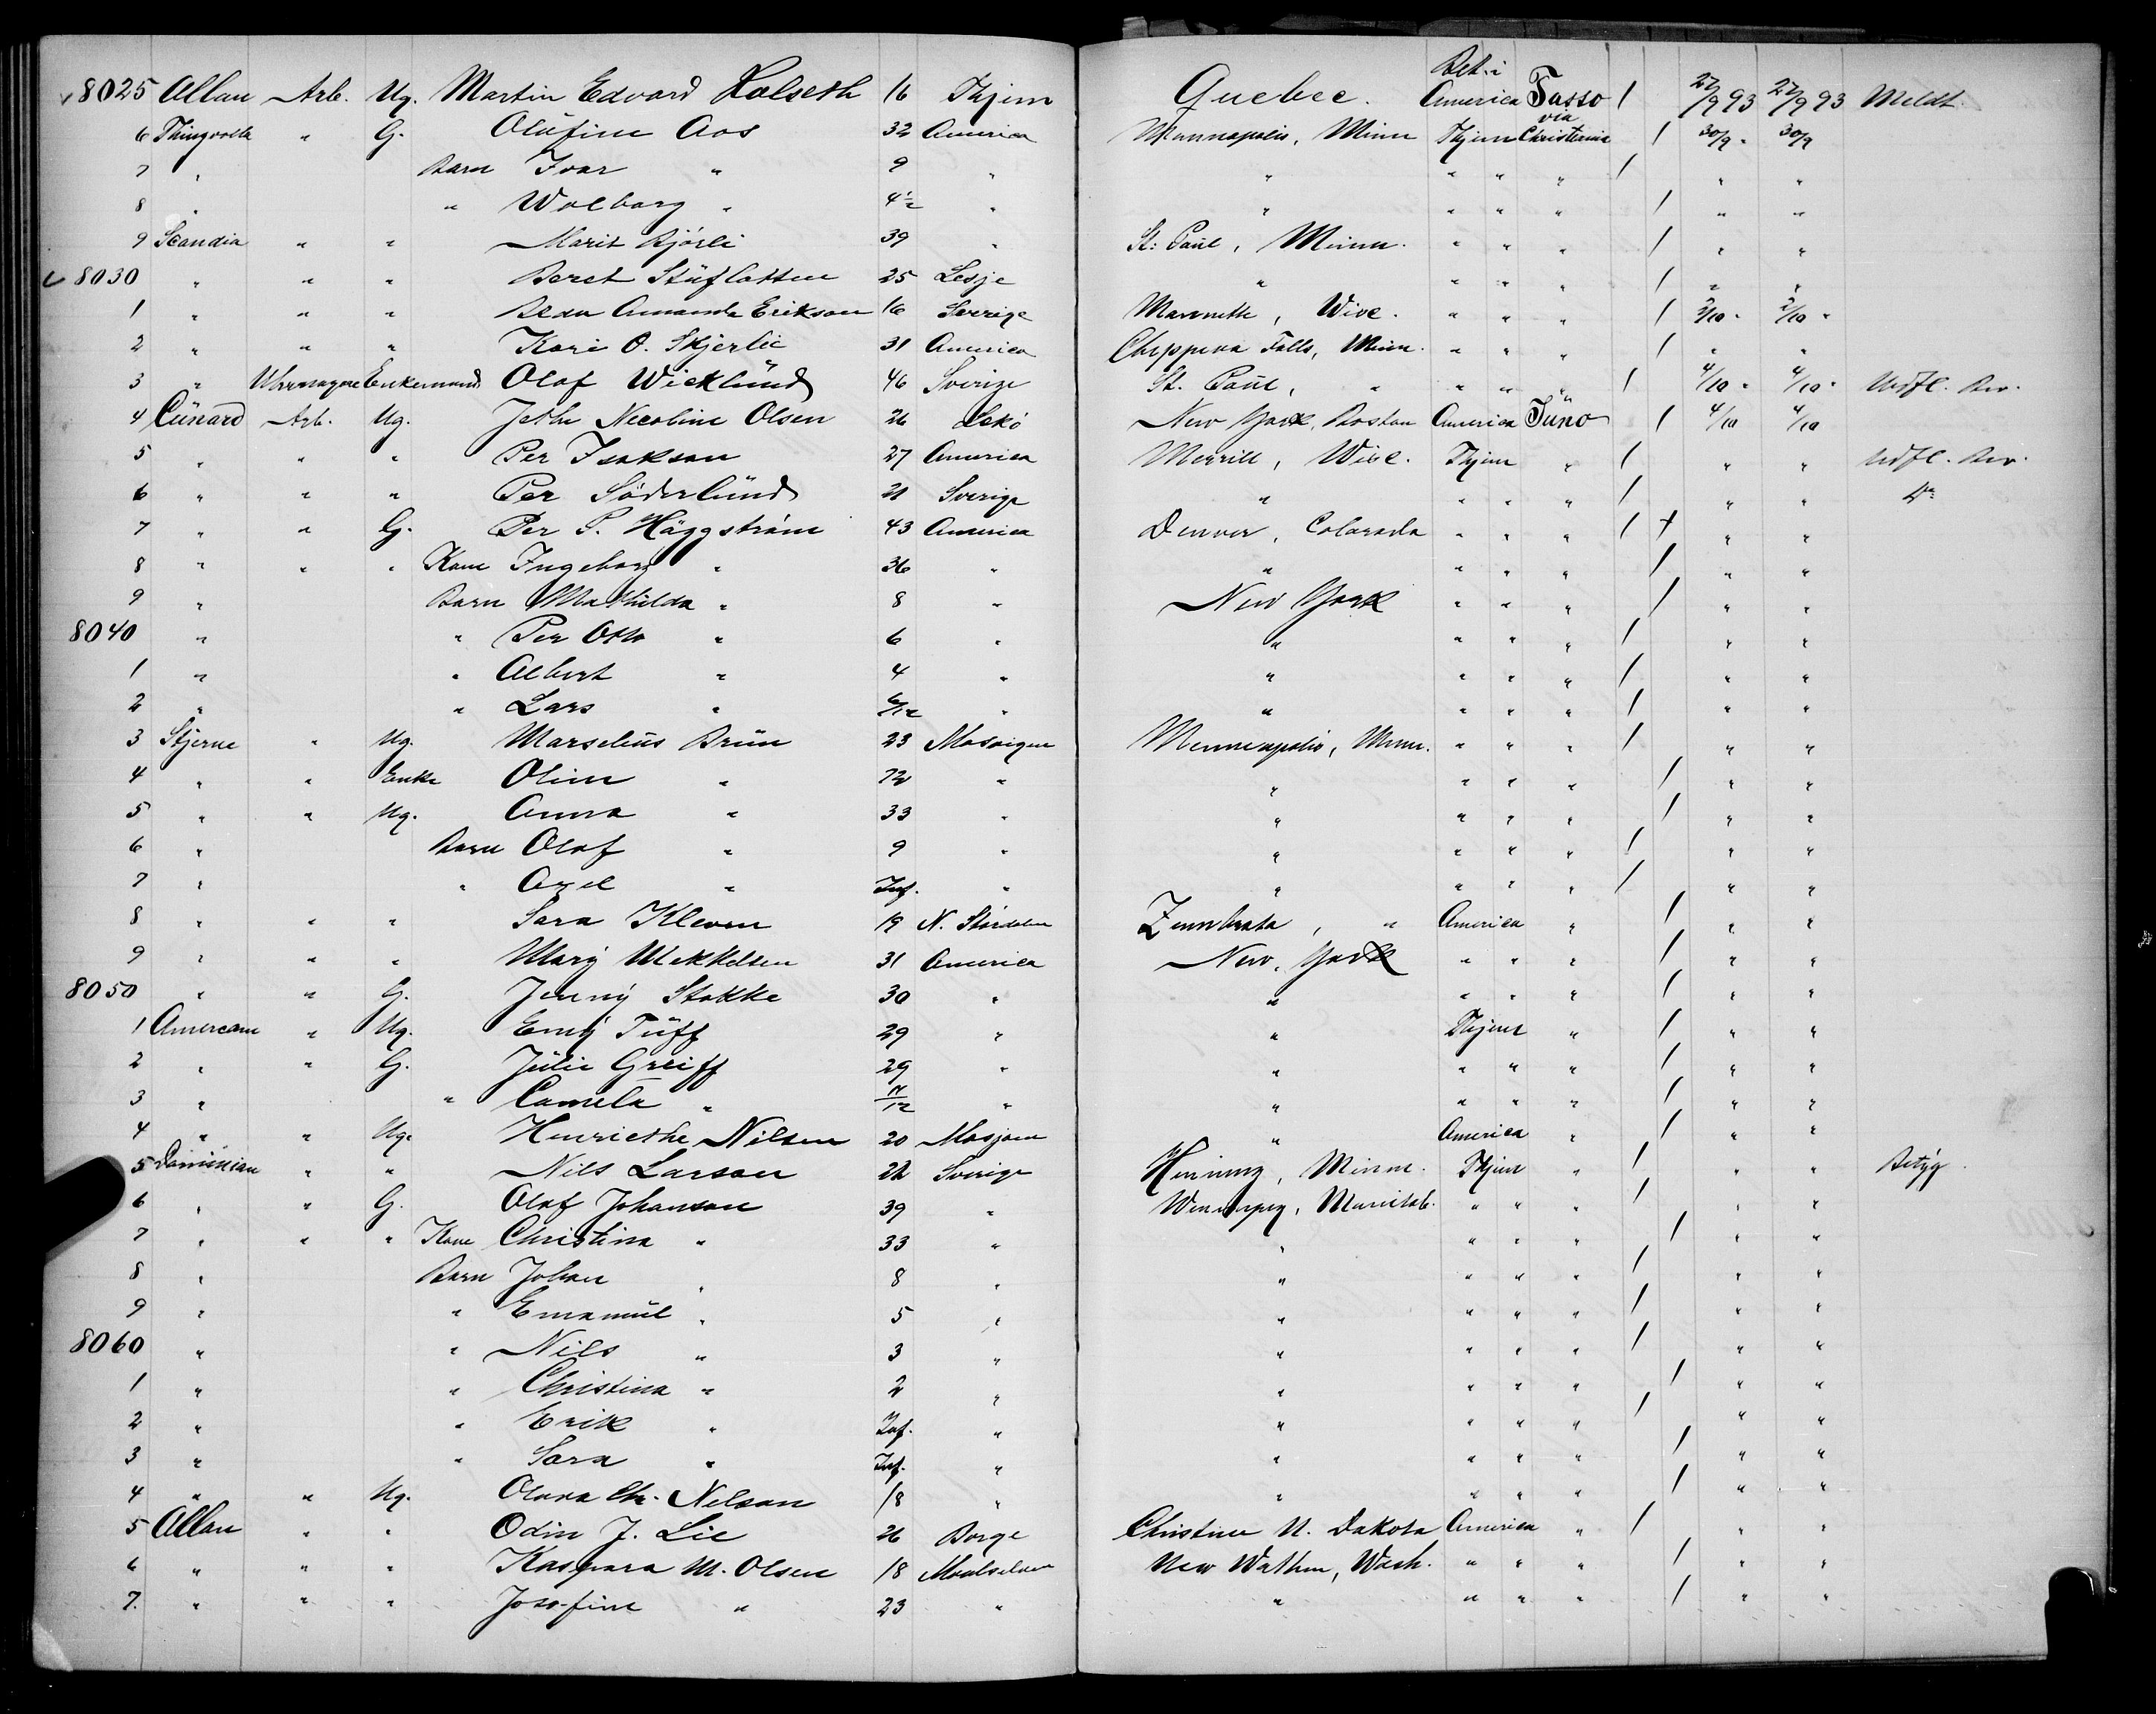 Bet. i
8025 Allan Arb. Ug. Martin Edvard Halseth 16 Thjem Quebec. America Tasso 1 27/9 93 27/9 93 Meldt
6 Thingvalla " G. Olüfine Aas 32 America Minneapolis, Minn Thjem via Christiania 1 30/9 " 30/9
7 " Barn Ivar " 9 " " " " " 1 " "
8 " " Wolborg " 4½ " " " " " 1 " "
9 Scandia " " Marit Bjørli 39 " St: Paul, Minn. " " " 1 " "
8030 " " " Beret Stüflotten 25 Lesje " " " " 1 " "
1 " " " Amanda Erikson 16 Sverige Marinette, Wisc. " " " 1 2/10 " 2/10 "
2 " " " Kari O. Skjerlie 31 America Chippewa Falls, Minn. " " " 1 " "
3 " Uhrmager Enkemand Olof Wicklünd 46 Sverige St. Paul, " " " " 1 4/10 " 4/10 " Udfl. Bev.
4 Cünard Arb. Ug. Jethe Necoline Olsen 26 Lekö New York, Boston America Jüno 1 4/10 4/10
5 " " " Per Isakson 27 America Merrill, Wisc. Thjem " 1 " " Udfl. Bev.
6 " " " Per Söderlünd 21 Sverige " " " " 1 " " Do
7 " " G. Per S. Häggström 43 America Denver, Colorado " " " 1 + " "
8 " " " Kone Ingeborg " 36 " " " " " 1 " "
9 " Barn Mathilda " 8 " New York " " " 1 " "
8040 " " Per Otto " 6 " " " " " 1 " "
1 " " Albert " 4 " " " " " 1 " "
2 " " Lars " 6/12 " " " " " 1 " "
3 Stjerne " Ug. Marselius Brün 23 Mosvigen Minneapolis, Minn. " " " 1 " "
4 " " Enke Oline " 72 " " " " " 1 " "
5 " " Ug. Anna " 33 " " " " " 1 " "
6 " Barn Olaf " 9 " " " " " 1 " "
7 " " Axel " Inf. " " " " " 1 " "
8 " " " Sara Kleven 19 N. Stördalen Zumbrota, " America " 1 " "
9 " " " Mary Mekkelsen 31 America New York " " " 1 " "
8050 " " G. Jenny Stokke 30 " " " " " 1 " "
1 American " Ug. Emy Tüff 29 " " Thjem " 1 " "
2 " " G. Jülie Greiff 29 " " " " " 1 " "
3 " " Camela " 7/12 " " " " " 1 " "
4 " " Ug. Henriethe Nilsen 20 Mosjøen " America " 1 " "
5 Dominion " " Nils Larson 22 Sverige Henning, Minn. Thjem " 1 " " Betyg.
6 " " G. Olof Johanson 39 " Winnipeg, Manitob. " " " 1 " "
7 " " " Kone Christina " 33 " " " " " 1 " "
8 " Barn Johan " 8 " " " " " 1 " "
9 " " Emanüel " 5 " " " " " 1 " "
8060 " " Nils " 3 " " " " " 1 " "
1 " " Christina " 2 " " " " " 1 " "
2 " " Erik " Inf. " " " " " 1 " "
3 " " Sara " Inf. " " " " " 1 " "
4 " " Ug. Nilson 18 " " " " " 1 " "
5 Allan " " Odin J. Lie 26 Borge Christine N. Dakota America " 1 " "
6 " " " Kaspara M. Olsen 18 Maalselven New Wathum, Wash. " " " 1 " "
7. " " " Josefine " 23 " " " " " 1 " "